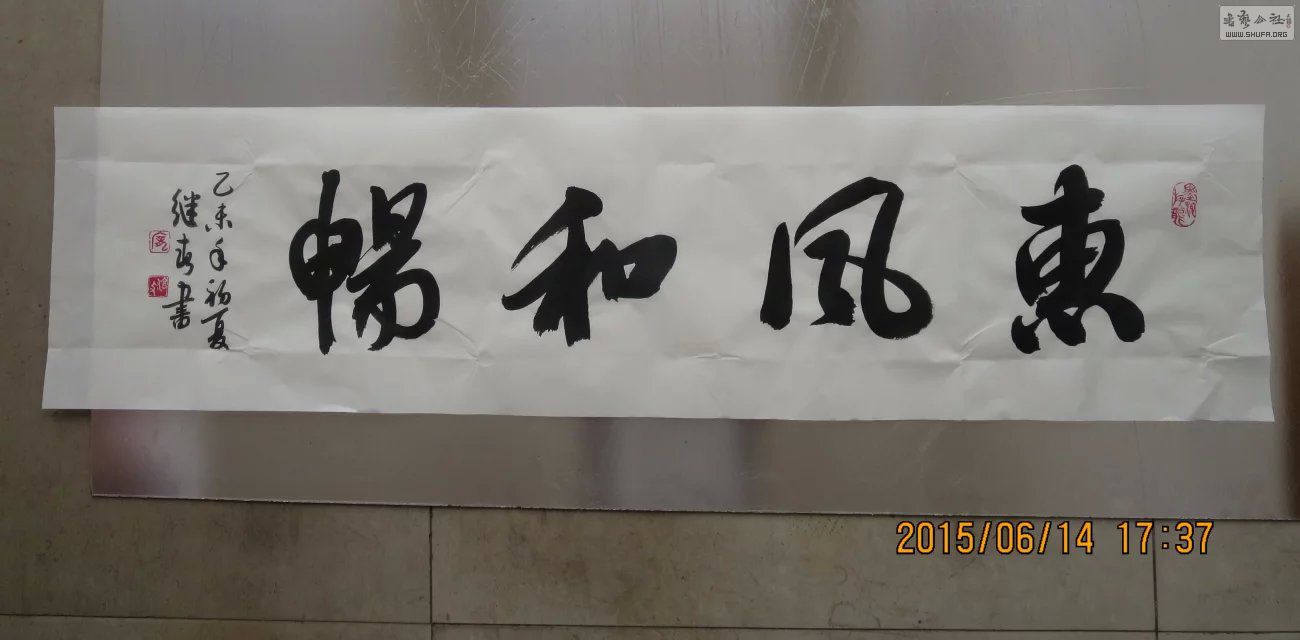 惠風和暢
乙未年初夏
继春書
书艺公社
WWW.SHUFA.ORG
2015/06/14 17:37